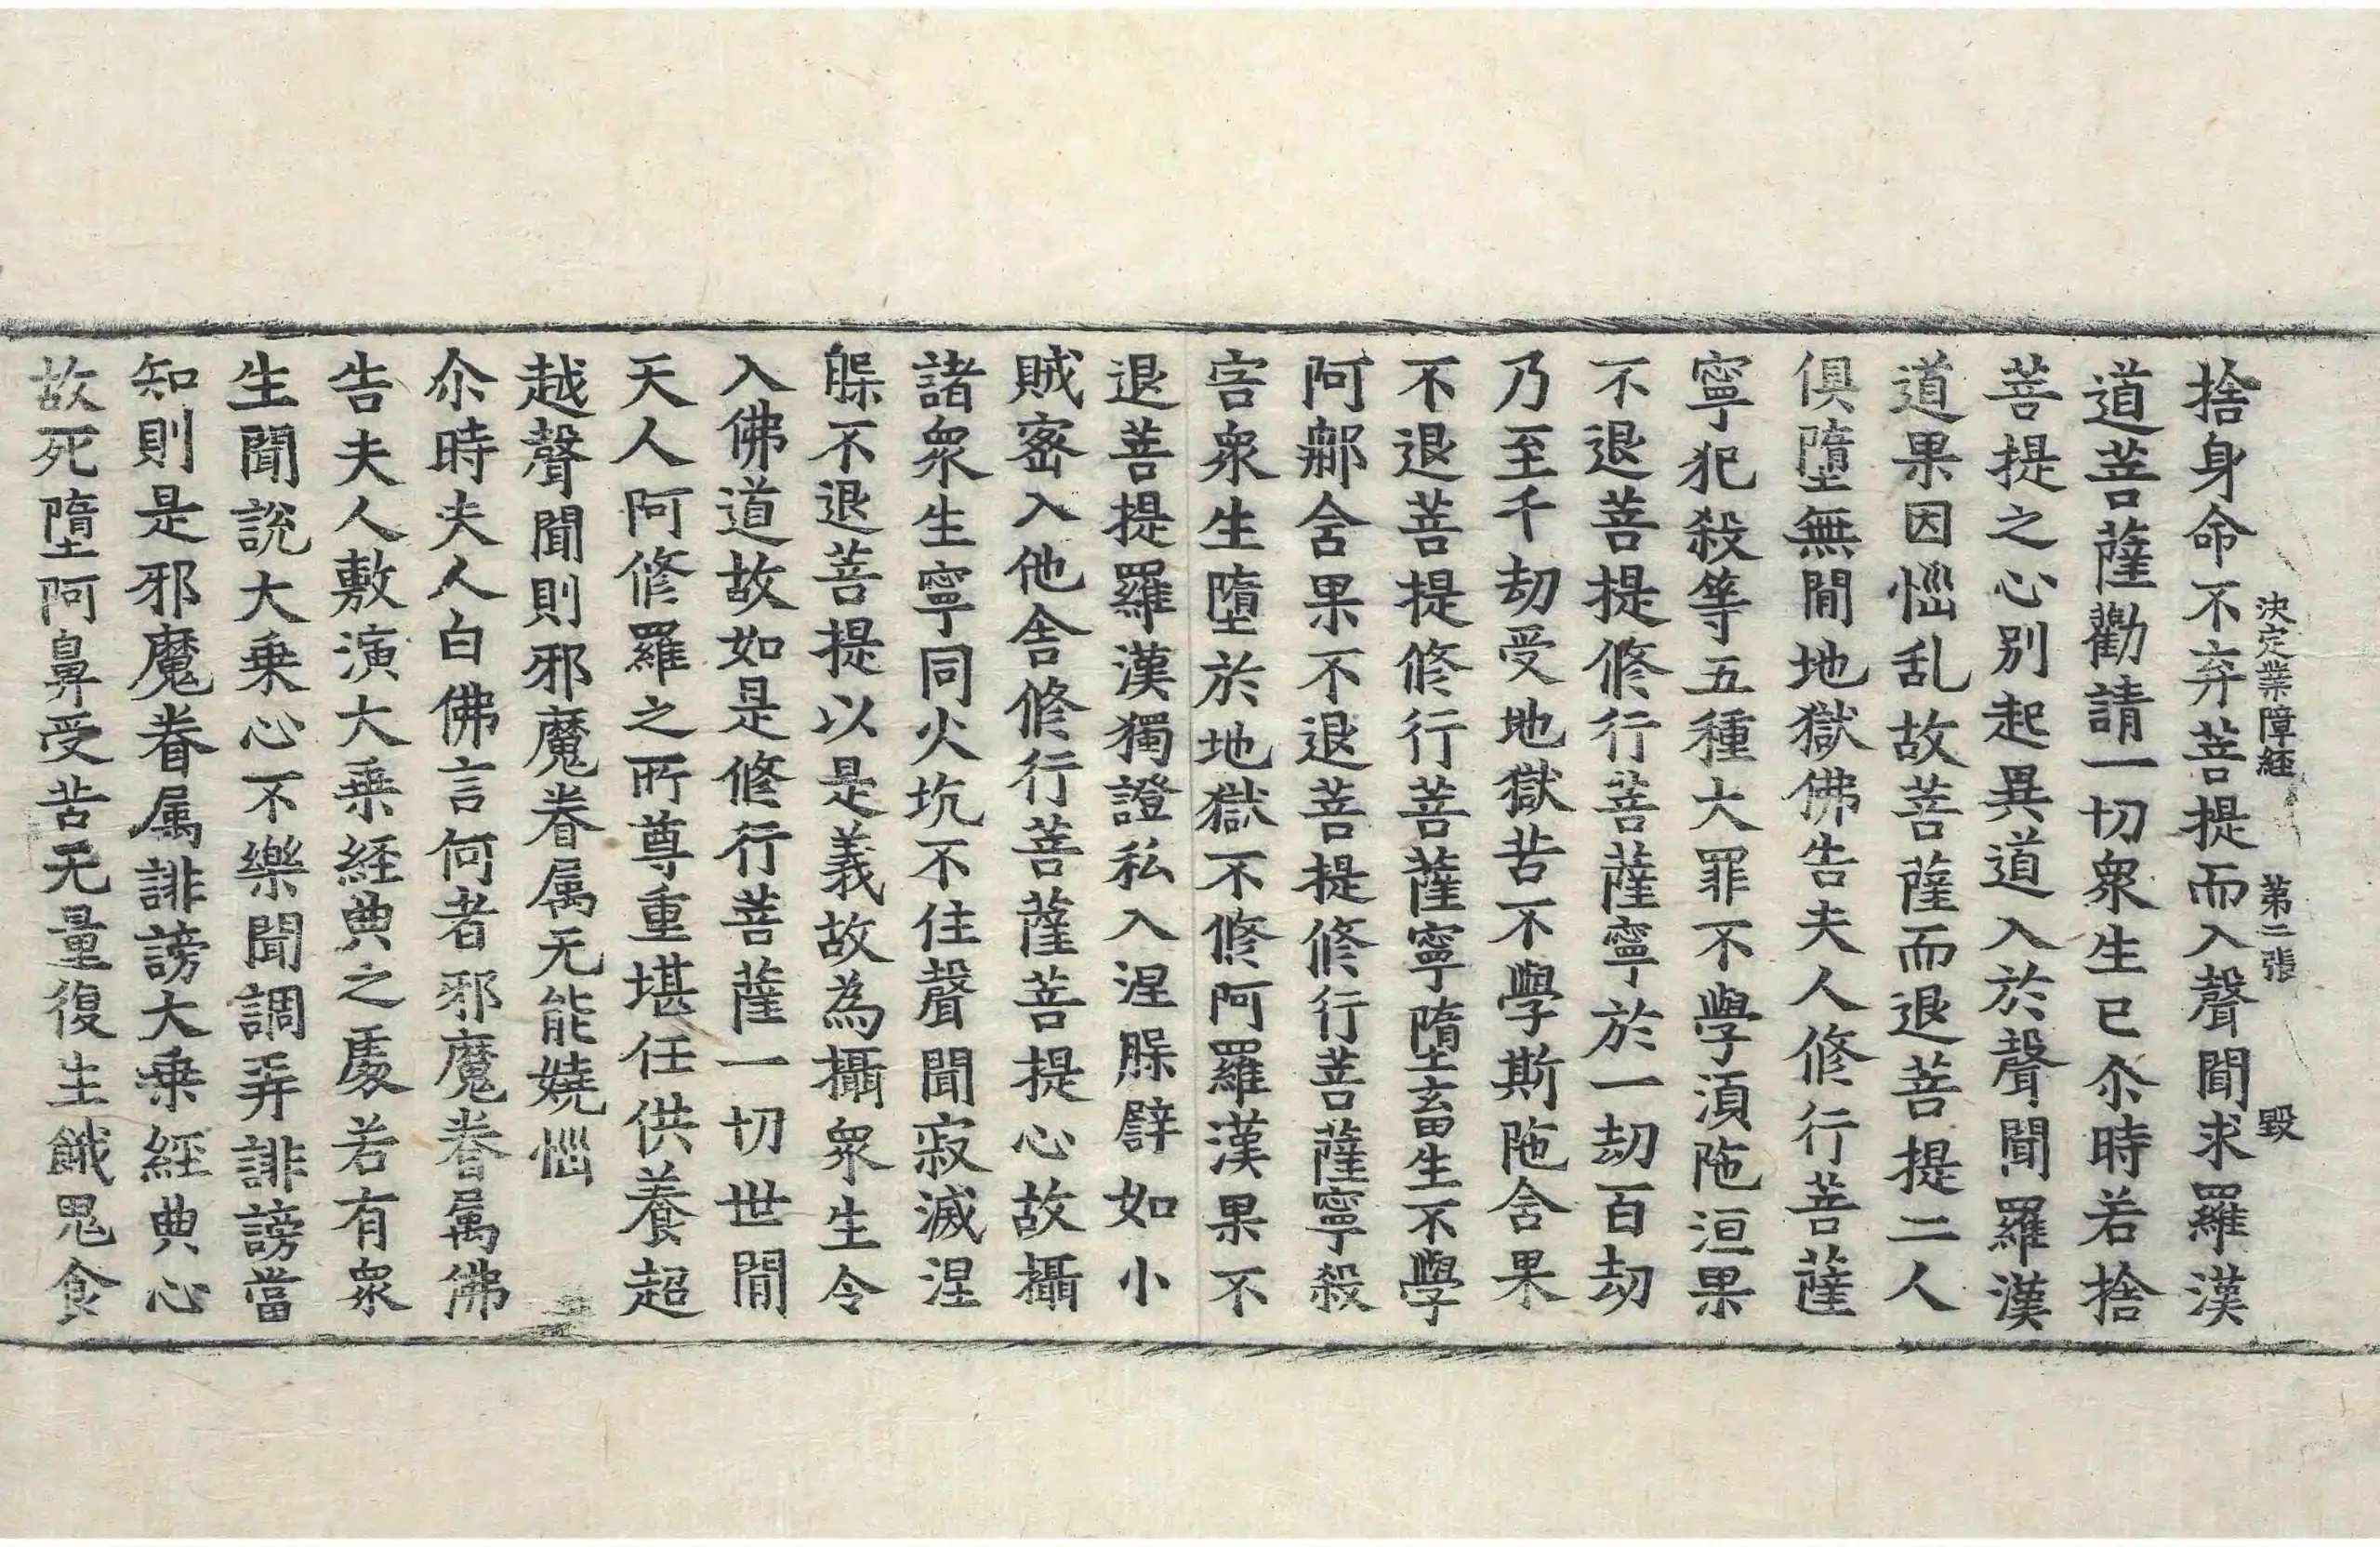 決定業障経 第二張 毀
捨身命不弃菩提而入聲聞求羅漢
道菩薩勸請一切衆生已尒時若捨
菩提之心別起異道入於聲聞羅漢
道果因惱乱故菩薩而退菩提二人
俱墮無間地獄佛告夫人修行菩薩
寧犯殺等五種大罪不學湏陁洹果
不退菩提修行菩薩寧於一劫百劫
乃至千劫受地獄苦不學斯陁含果
不退菩提修行菩薩寧墮畜生不學
阿那含果不退菩提修行菩薩寧殺
害衆生墮於地獄不修阿羅漢果不
退菩提羅漢獨證私入涅槃譬如小
賊宻入他舍修行菩薩菩提心故攝
諸衆生寧同火坑不住聲聞寂滅涅
槃不退菩提以是義故為攝衆生令
入佛道故如是修行菩薩一切世間
天人阿修羅之所尊重堪任供養超
越聲聞則邪魔眷属无能嬈惱
尒時夫人白佛言何者邪魔眷属佛
告夫人敷演大乗経典之處若有衆
生聞説大乗心不樂聞調弄誹謗當
知則是邪魔眷属誹謗大乗經典心
故死墮阿鼻受苦无量復生餓鬼食